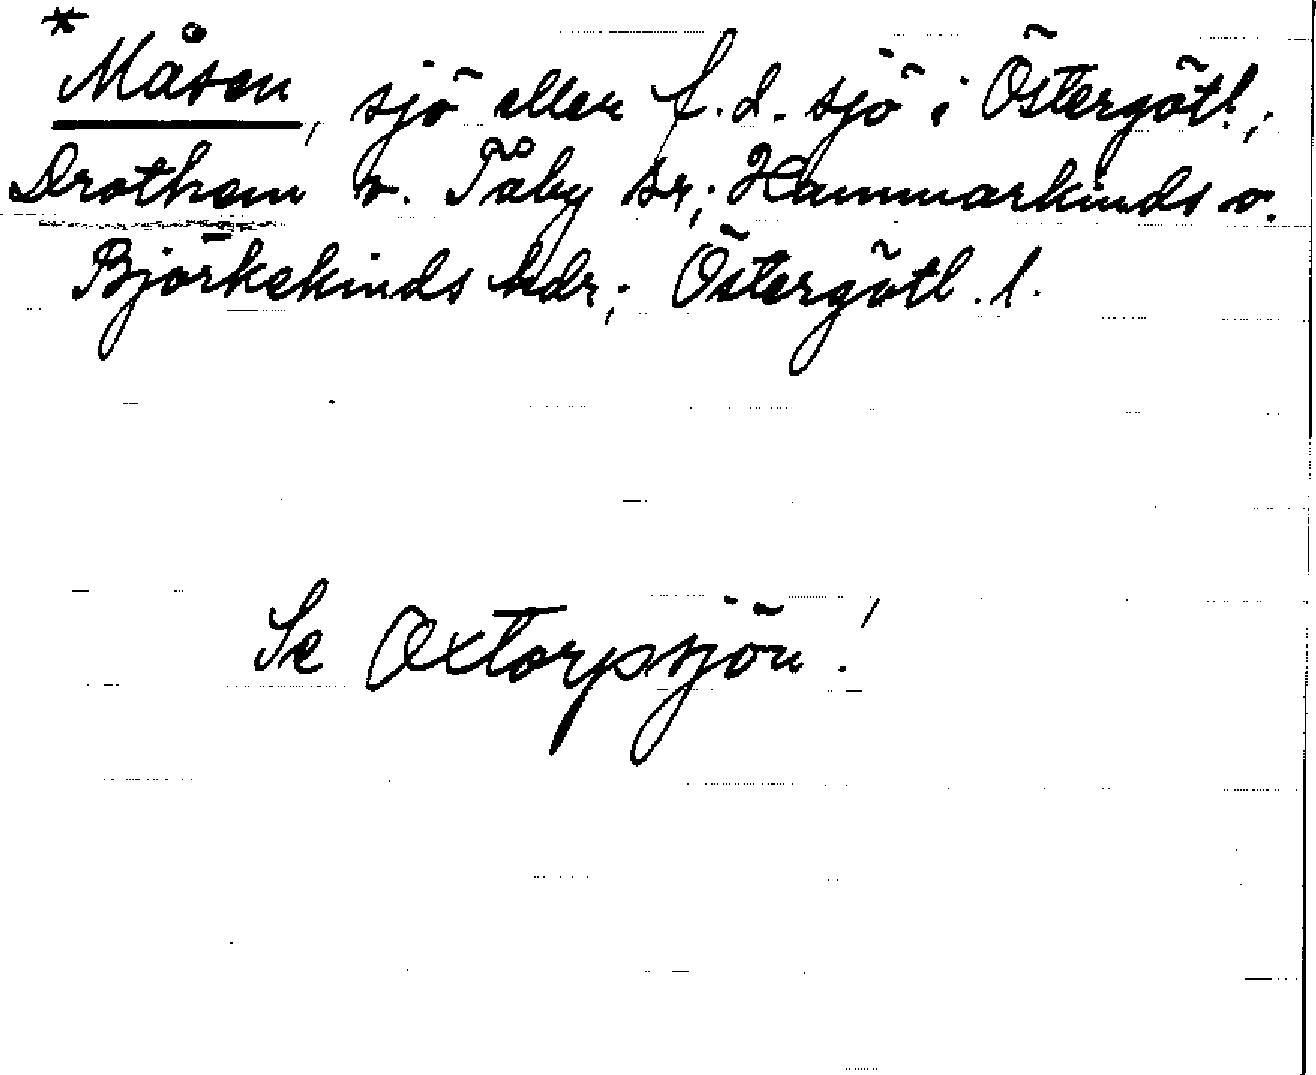 *Måsen, sjö eller f.d. sjö i Östergötl.;
Drothem o. Tåby sr; Hammarkinds o.
Björkekinds hdr; Östergötl. l.
Se Oxtorpsjön!